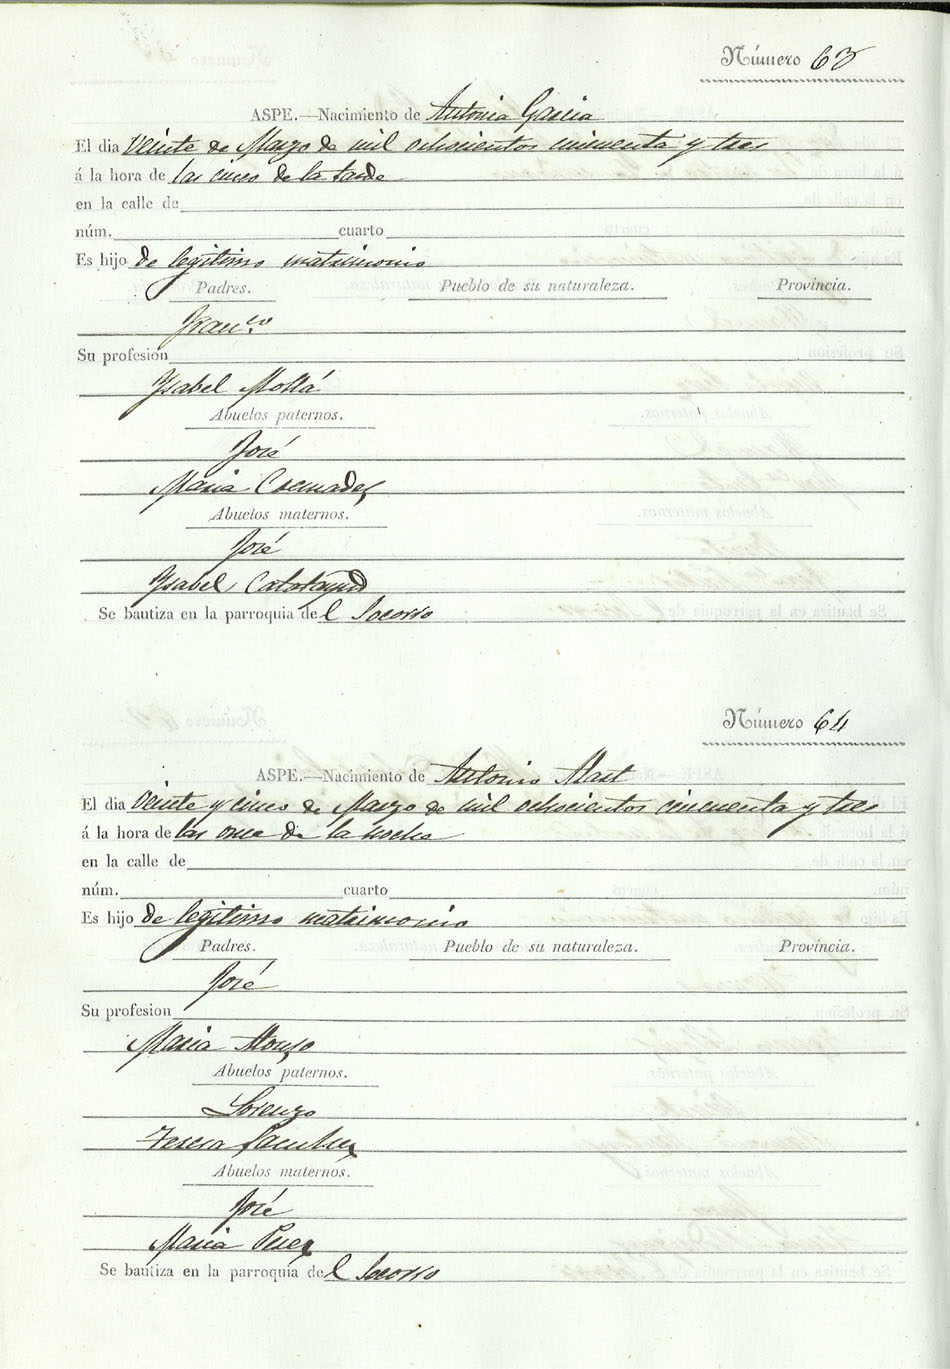 Número 63
ASPE.—Nacimiento de Antonia Garcia
El dia veinte de Marzo de mil ochocientos cincuenta y tres
á la hora de las cinco de la tarde
en la calle de
núm. cuarto
Es hijo de legitimo matrimonio
Padres. Pueblo de su naturaleza. Provincia.
Fran.co
Su profesion
Ysabel Mollá
Abuelos paternos.
José
Maria Cremades
Abuelos maternos.
José
Ysabel Calatayud
Se bautiza en la parroquia del Socorro
Número 64
ASPE.—Nacimiento de Antonio
El dia veinte y cinco de Marzo de mil ochocientos cincuenta y tres
á la hora de las once de la noche
en la calle de
núm. cuarto
Es hijo de legitimo matrimonio
Padres. Pueblo de su naturaleza. Provincia.
José
Su profesion
Maria Alonso
Abuelos paternos.
Lorenzo
Teresa Sanchez
Abuelos maternos.
José
Maria Perez
Se bautiza en la parroquia del Socorro